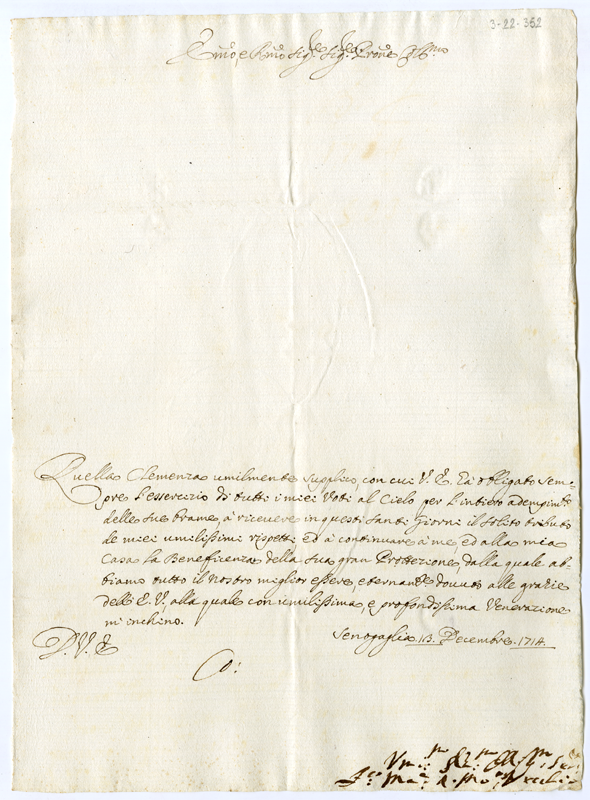 3-22-352
Em̃o, e Rm̃o Sig.re Sig.re Prone Colmo
Quella Clemenza umilmente supplico, con cui V. E. hà obligato sem=
pre l'essercizio di tutti i miei Voti al Cielo per l'intiero adempimto
delle sue brame, à ricevere in questi santi Giorni il solito tributo
de miei umilissimi rispetti ed à continuare à me, ed alla mia
Casa la Beneficenza della sua gran Protezione, dalla quale ab=
biamo tutto il nostro miglior essere, eternamte dovuto alle grazie
dell' E. V. alla quale con umilissima, e profondissima Venerazione
mi inchino.
Senogaglia 13. Decembre. 1714.
D. V. E.